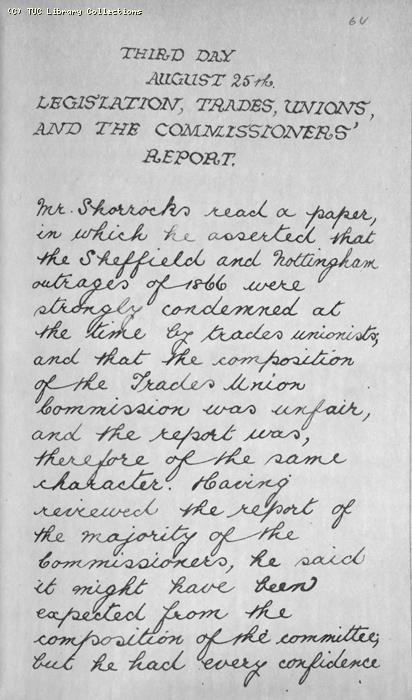 (C) TUC Library Collections
64
THIRD DAY
AUGUST 25th.
LEGISLATION, TRADES, UNIONS,
AND THE COMMISSIONERS'
REPORT.
Mr. Shorrocks read a paper,
in which he asserted that
the Sheffield and Nottingham
outrages of 1866 were
strongly condemned at
the time by trades unionists,
and that the composition
of the Trades Union
Commission was unfair,
and the report was,
therefore of the same
character. Having
reviewed the report of
the majority of the
Commissioners, he said
it might have been
expected from the
composition of the committee;
but he had every confidence